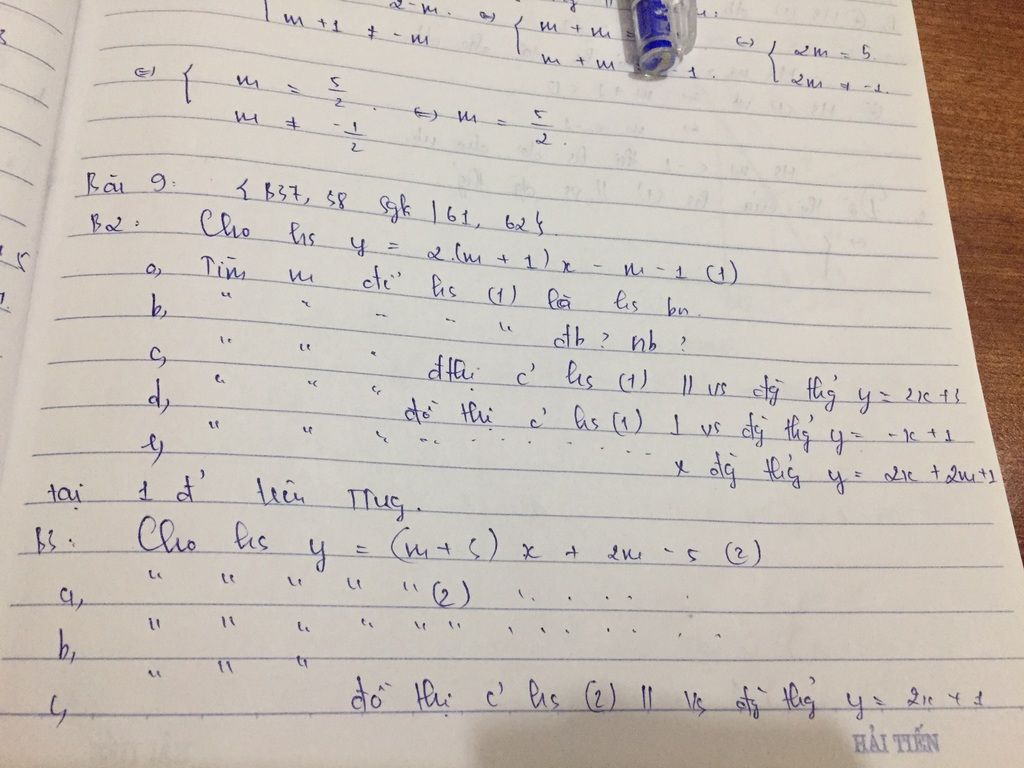 2-m. ⇔ { m + m =
m + 1 ≠ -m m + m - 1. ⇔ { 2m = 5.
2m ≠ -1.
⇔ { m = 5/2. ⇔ m = 5/2.
m ≠ -1/2
Bài 9: { B37, 38 sgk | 61, 62 }
B2: Cho hs y = 2.(m + 1) x - m - 1 (1)
a, Tìm m để hs (1) là hs bn.
b, " " - - " đb? nb?
c, " " " đthị c' hs (1) // vs đg thg̉ y = 2x + 3
d, " " " đồ thị c' hs (1) ⊥ vs đg thg̉ y = -x + 1
e, " " " .. . . . . . . . . x đg thg̉ y = 2x + 2m + 1
tại 1 đ' trên Ttug.
B3: Cho hs y = (m + 5) x + 2m - 5 (2)
a, " " " " " (2) . . . . .
b, " " " " " " . . . . . .
c, " " " đồ thị c' hs (2) // vs đg thg̉ y = 2x + 1
HẢI TIẾN